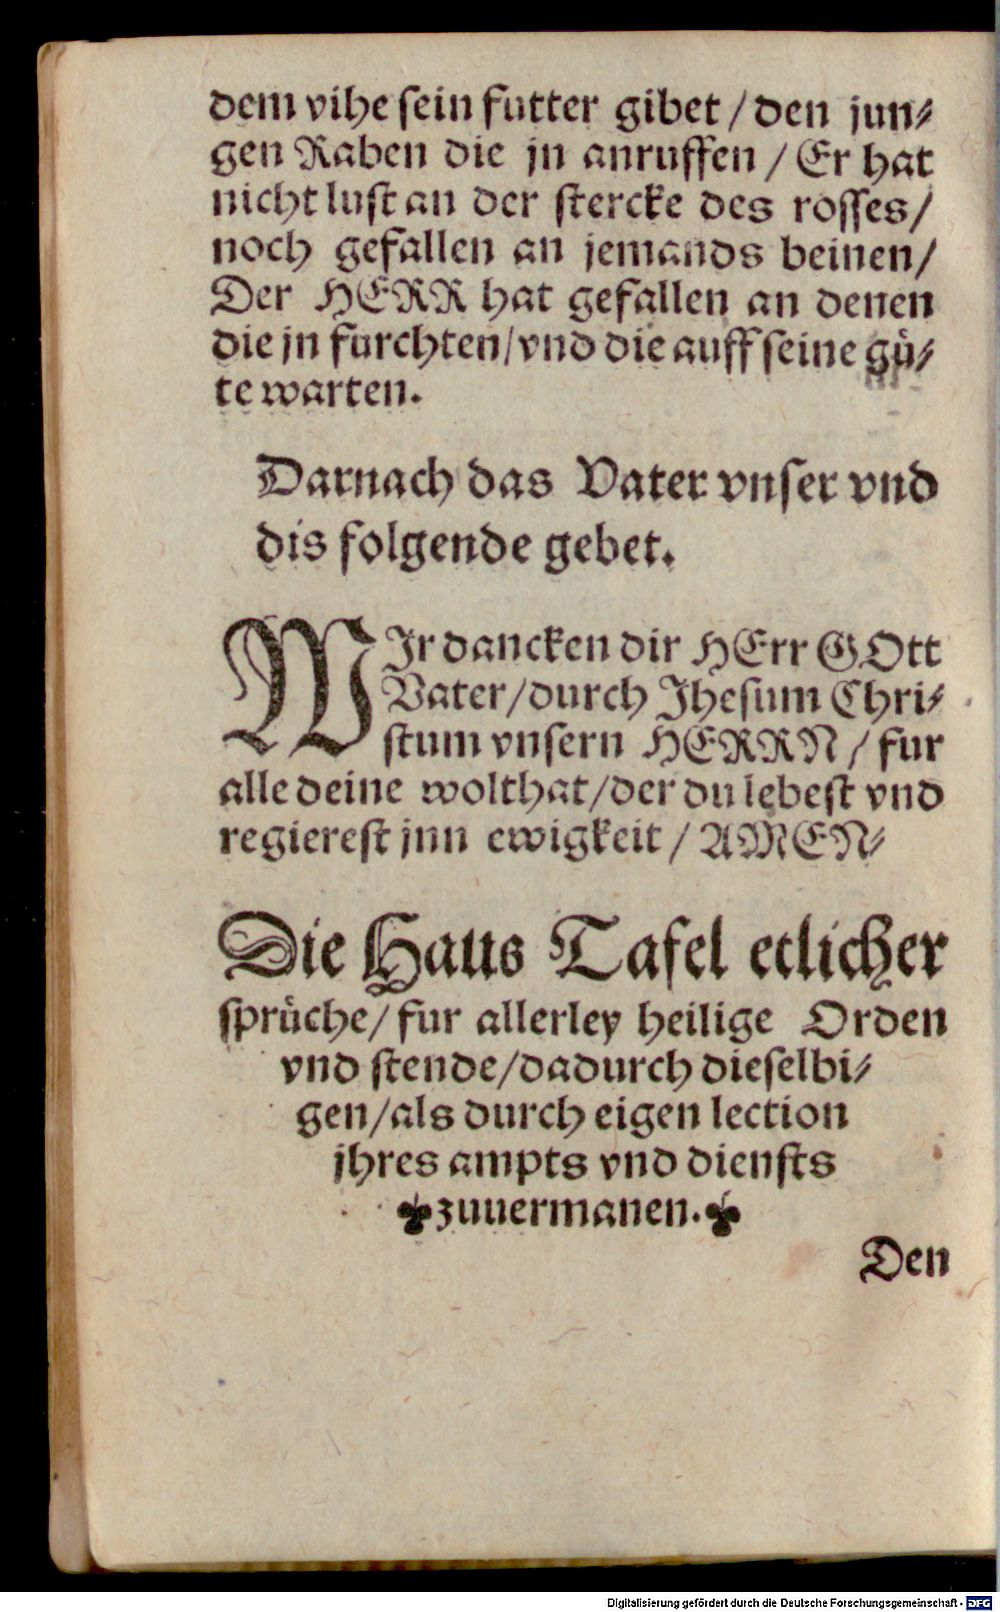 dem vihe sein futter gibet / den jun⸗
gen Raben die jn anruffen / Er hat
nicht lust an der stercke des rosses /
noch gefallen an jemands beinen /
Der HERR hat gefallen an denen
die jn furchten / vnd die auff seine guͤ⸗
te warten.
Darnach das Vater vnser vnd
dis folgende gebet.
WIr dancken dir HErr GOtt
Vater / durch Jhesum Chri⸗
stum vnsern HERRN / fur
alle deine wolthat / der du lebest vnd
regierest jnn ewigkeit / AMEN⸗
Die Haus Tafel etlicher
spruͤche / fur allerley heilige Orden
vnd stende / dadurch dieselbi⸗
gen / als durch eigen lection
jhres ampts vnd diensts
zuuermanen.
Den
Digitalisierung gefördert durch die Deutsche Forschungsgemeinschaft - DFG